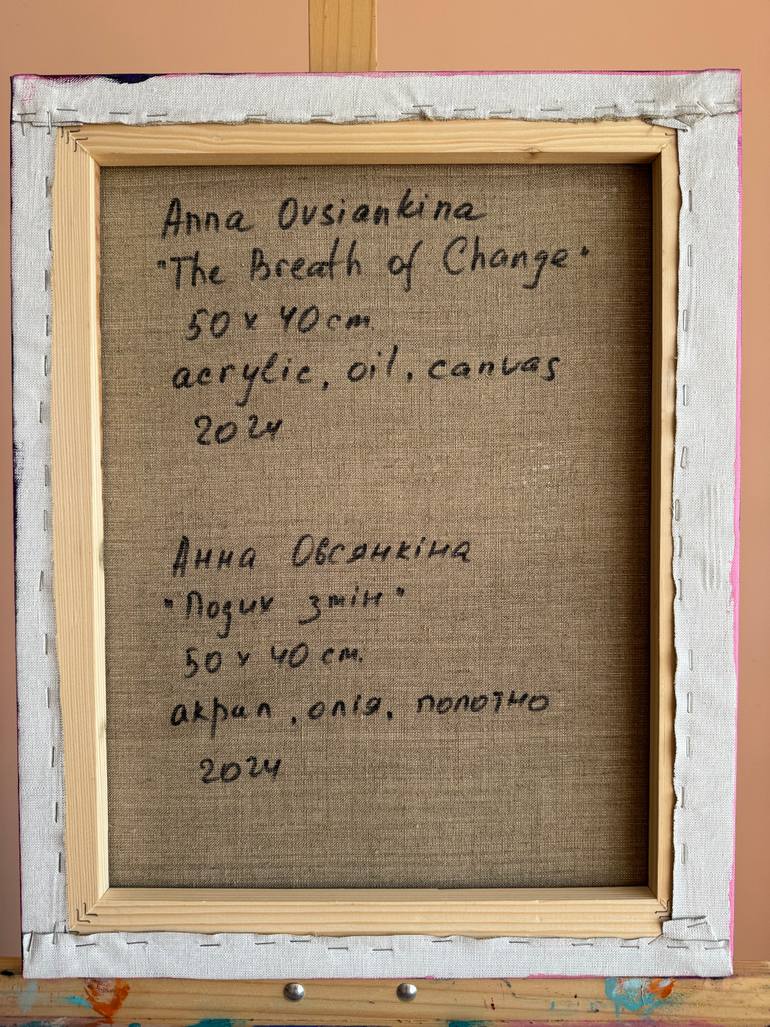 Anna Ovsiankina
"The Breath of Change"
50 x 40 cm.
acrylic, oil, canvas
2024
Анна Овсянкіна
"Подих змін"
50 x 40 cm.
акрил, олія, полотно
2024